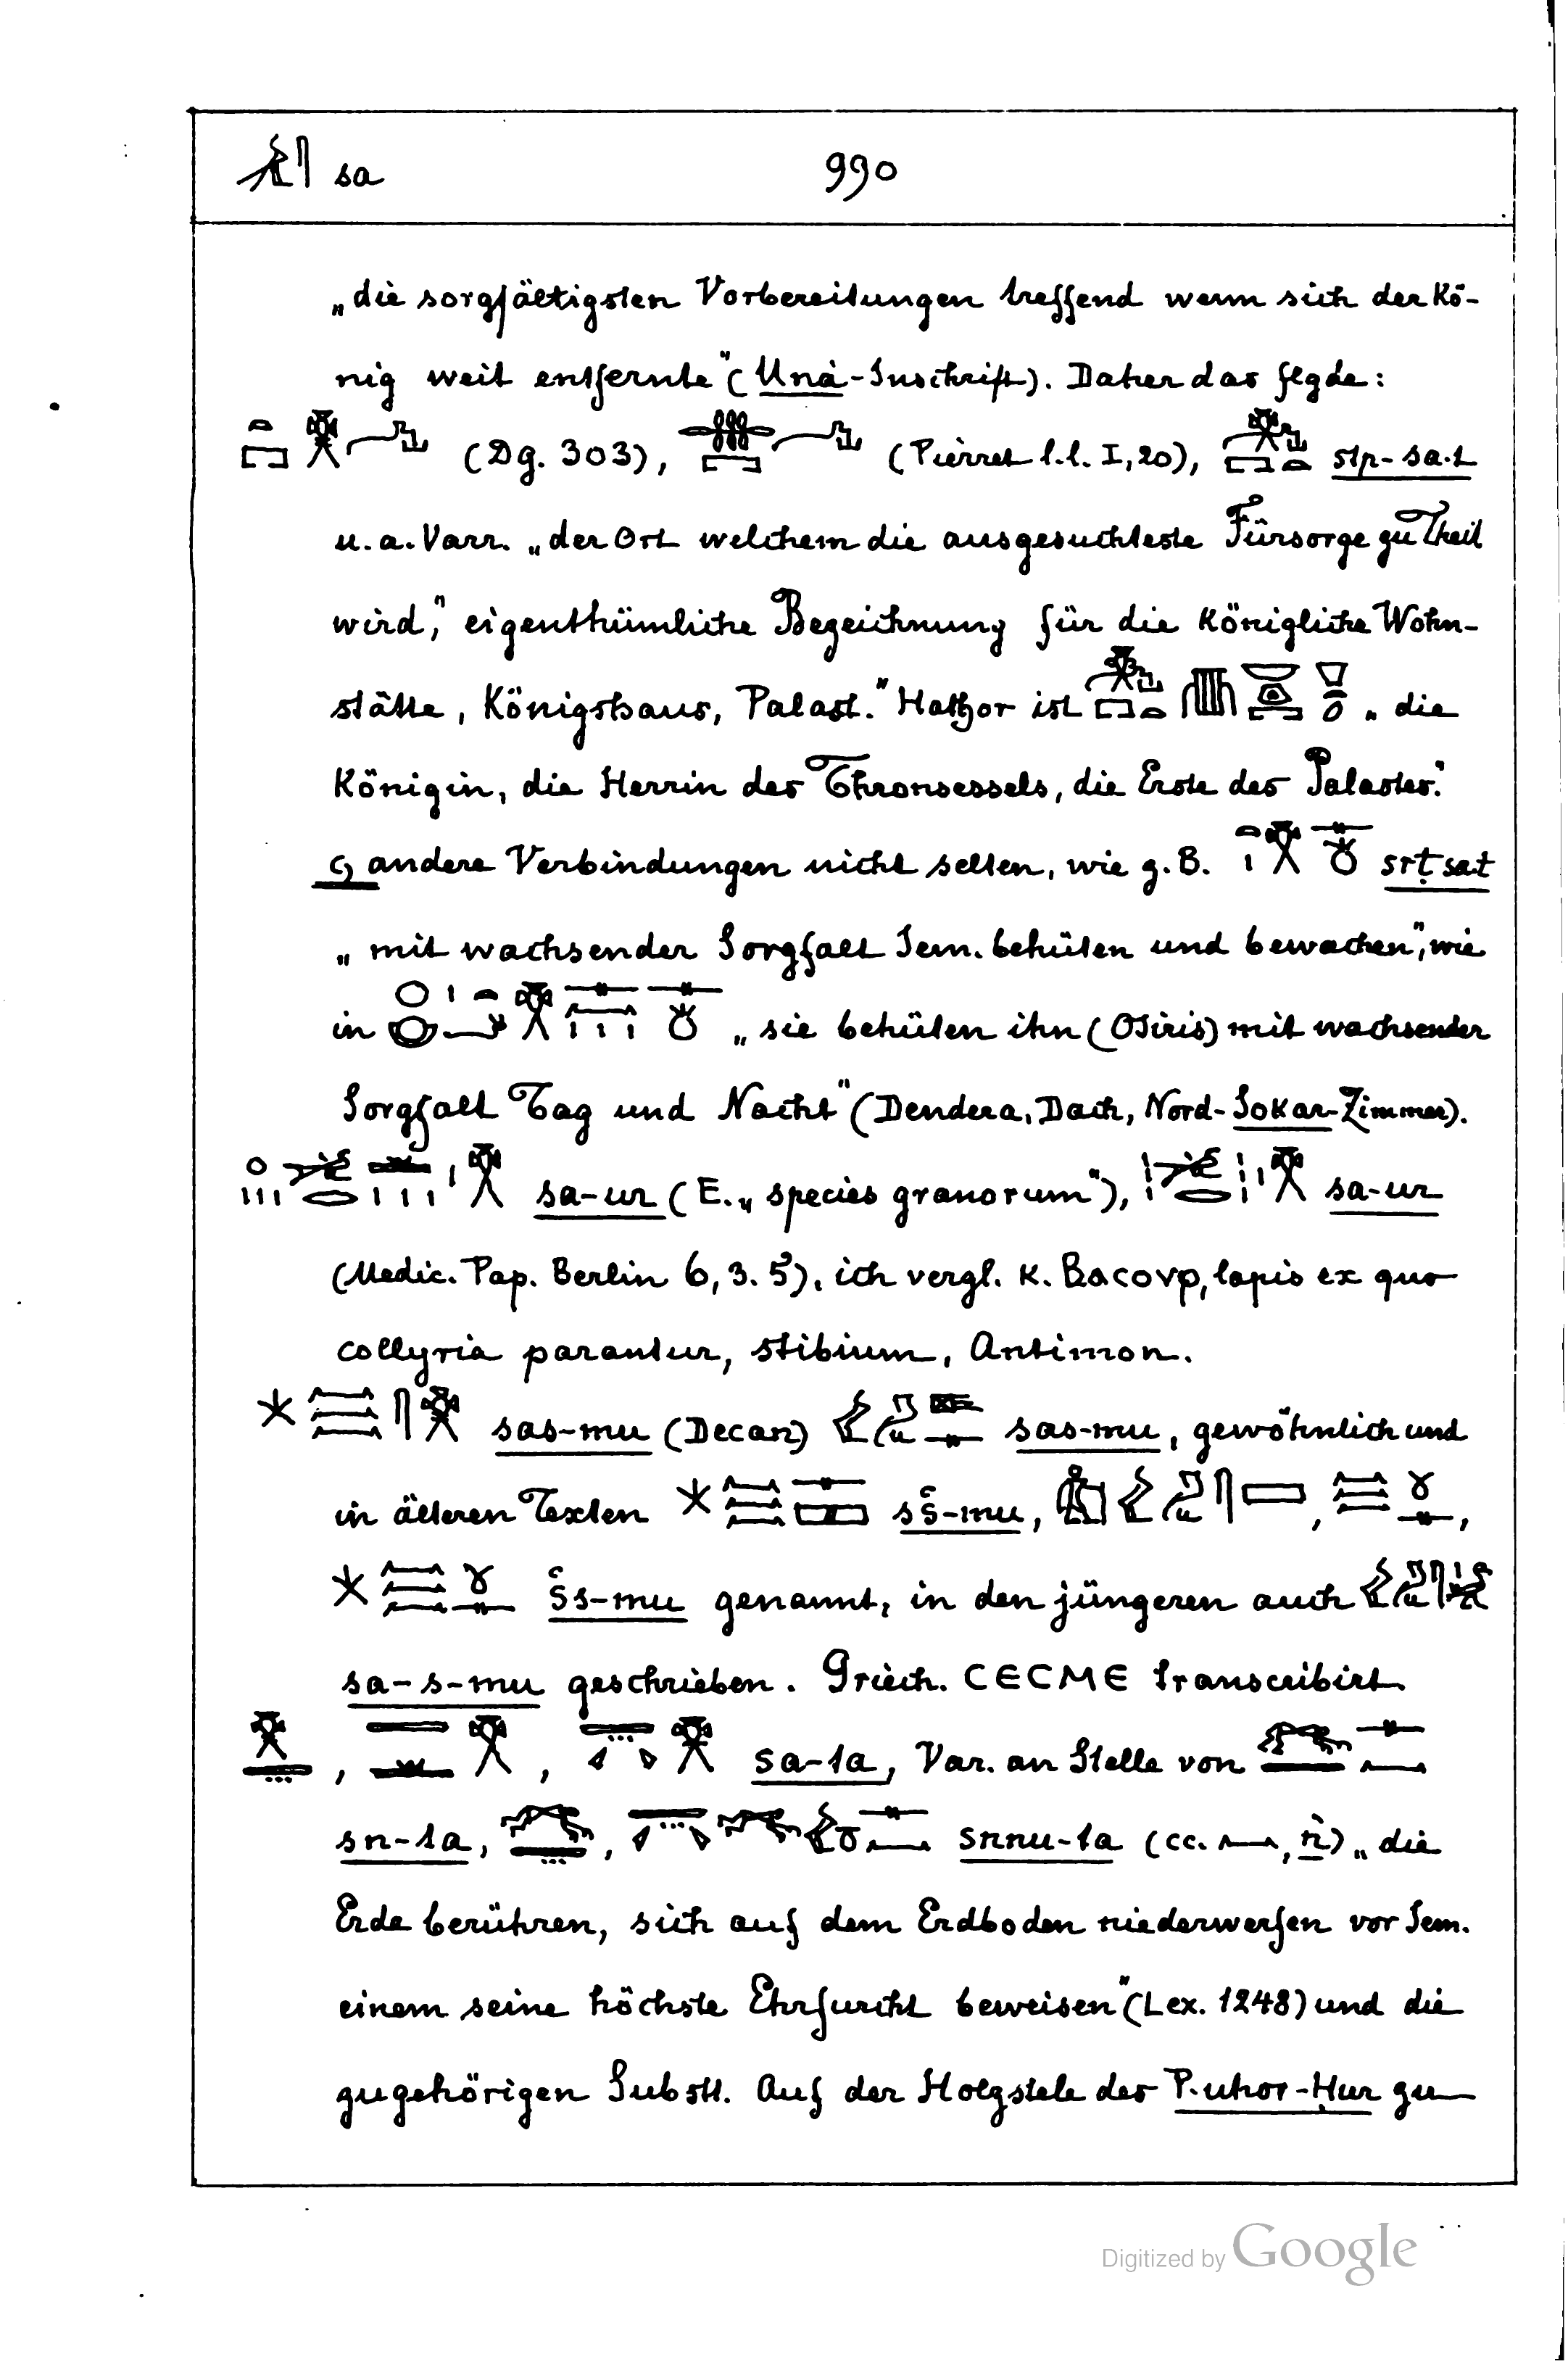 sa 990
„die sorgfältigsten Vorbereitungen treffend wenn sich der Kö-
nig weit entfernte" (Unȧ-Inschrift). Daher das flgde:
(Dg. 303), (Pierret l.l. I,20), stp-sa.t
u.a. Varr. „der Ort welchem die ausgesuchteste Fürsorge zu Theil
wird," eigenthümliche Bezeichnung für die Königliche Wohn-
stätte, Königshaus, Palast." Hathor ist „die
Königin, die Herrin des Thronsessels, die Erste des Palastes."
c, andere Verbindungen nicht selten, wie z.B. srṭ sa.t
„mit wachsender Sorgfalt Jem. behüten und bewachen", wie
in „sie behüten ihn (Osiris) mit wachsender
Sorgfalt Tag und Nacht" (Dendera, Dach, Nord-Sokar-Zimmer).
sa-ur (E. „species granorum"), sa-ur
(Medic. Pap. Berlin 6,3.5), ich vergl. K. Bacoyp, lapis ex quo
collyria parantur, stibium, Antimon.
sas-mu (Decan) sas-mu, gewöhnlich und
in älteren Texten sš-mu, , ,
šs-mu genannt, in den jüngeren auch
sa-s-mu geschrieben. Griech. CECME transcribirt.
, , sa-ta, Var. an Stelle von
sn-ta, , snnu-ta (cc. , ṅ) „die
Erde berühren, sich auf dem Erdboden niederwerfen vor Jem.
einem seine höchste Ehrfurcht beweisen" (Lex. 1248) und die
zugehörigen Substt. Auf der Holzstele des P.uhor-Ḥur zu
Digitized by Google